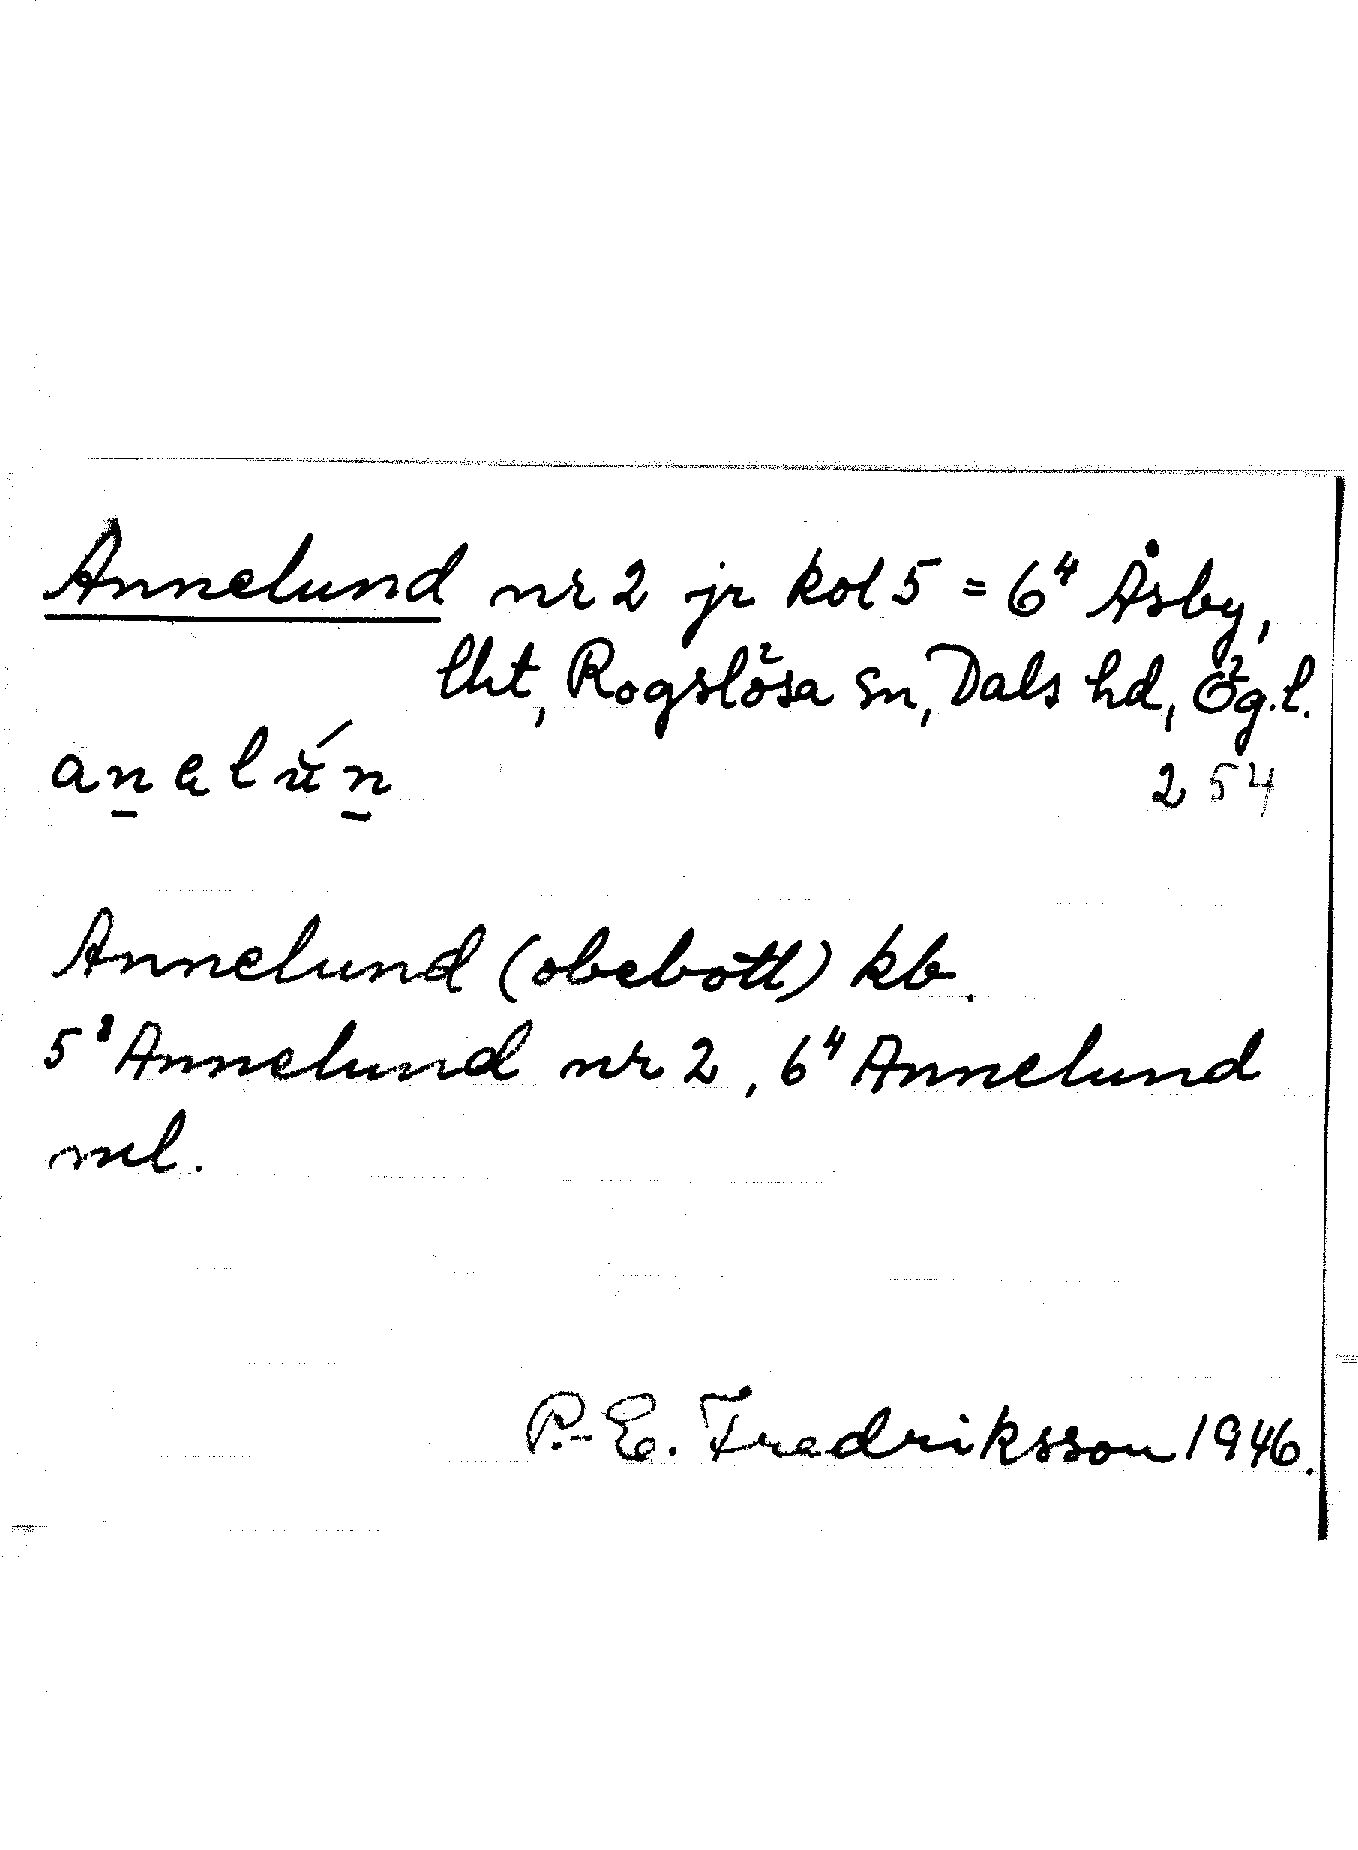 Annelund nr 2 jr kol 5 = 6⁴ Åsby,
lht, Rogslösa sn, Dals hd, Ög.l.
254
Annelund (obebott) kb.
5¹ Annelund nr 2, 6⁴ Annelund
ml.
P.-E. Fredriksson 1946.